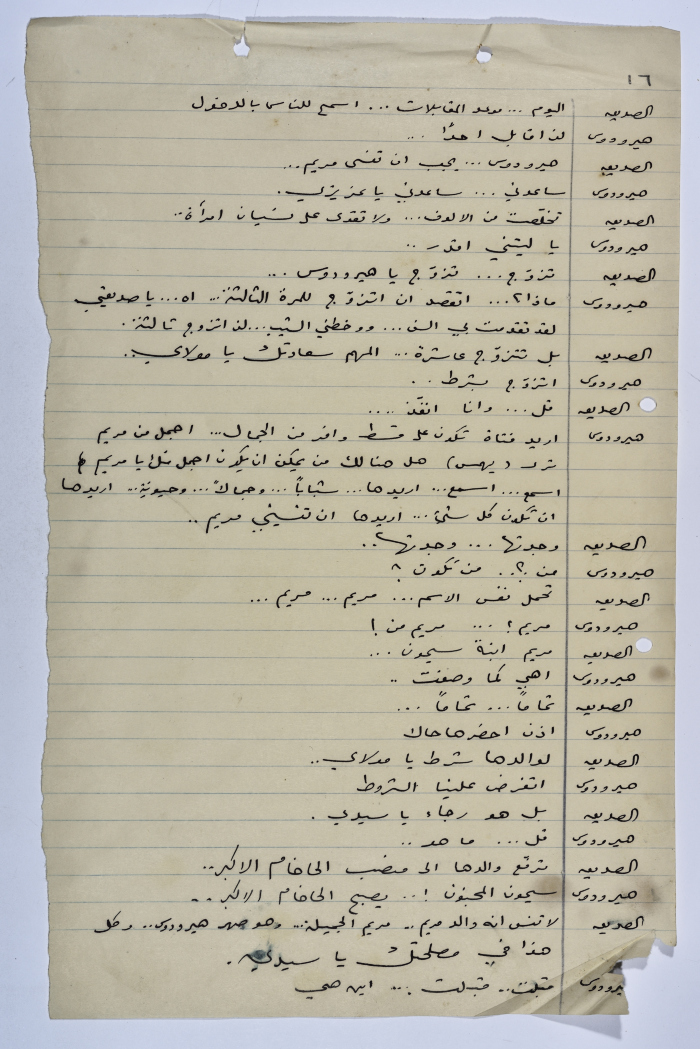 ١٦
الصديق اليوم ... موعد المقابلات ... اسمح للناس بالدخول
هيرودوس لن اقابل احدًا ...
الصديق هيرودوس ... يجب ان تنسى مريم ...
هيرودوس ساعدني ... ساعدني يا عزيزي .
الصديق تخلّصت من الالوف ... ولا تقدر على نسيان امرأة ..
هيرودوس يا ليتني اقدر ..
الصديق تزوّج ... تزوّج يا هيرودوس ...
هيرودوس ماذا؟ ... اتقصد ان اتزوّج للمرة الثالثة ... اه ... يا صديقي
لقد تقدمت بي السن ... ووخطني الشيب ... لن اتزوج ثالثة .
الصديق بل تتزوّج عاشرة ... المهم سعادتك يا مولاي ..
هيرودوس اتزوّج بشرط ..
الصديق قل ... وانا انفّذ ....
هيرودوس اريد فتاة تكون على قسط وافر من الجمال ... اجمل من مريم
ترى (يهمس) هل هنالك من يمكن ان يكون اجمل منك يا مريم
اسمع ... اسمع ... اريدها ... شباباً ... وجمالاً ... وحيوية ... اريدها
ان تكون كل شيء ... اريدها ان تنسيني مريم ..
الصديق وجدتها ... وجدتها ..
هيرودوس من ؟ .. من تكون ؟
الصديق تحمل نفس الاسم ... مريم ... مريم ...
هيرودوس مريم ! ... مريم من !
الصديق مريم ابنة سيمون ...
هيرودوس اهي كما وصفت ..
الصديق تماماً ... تماماً ...
هيرودوس اذن احضرها حالا
الصديق لوالدها شرط يا مولاي ..
هيرودوس اتفرض علينا الشروط
الصديق بل هو رجاء يا سيدي .
هيرودوس قل ... ما هو ..
الصديق ترفّع والدها الى منصب الحاخام الاكبر ..
هيرودوس سيمون المجنون ! .. يصبح الحاخام الاكبر ..
الصديق لا تنس انه والد مريم .. مريم الجميلة ... وهو صهر هيرودوس .. وكل
هذا في مصلحتك يا سيدي .
يرودوس قبلت .. قبلت ... اين هي